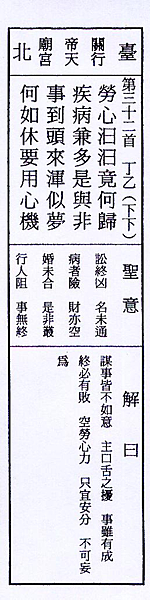 臺北
行天宮
關帝廟
第三十二首　丁乙（下下）
勞心汩汩竟何歸
疾病兼多是與非
事到頭來渾似夢
何如休要用心機
聖意
訟終凶　名未通
病者險　財亦空
婚未合　是非叢
行人阻　事無終
解曰
謀事皆不如意　主口舌之擾　事雖有成
終必有敗　空勞心力　只宜安分　不可妄
為